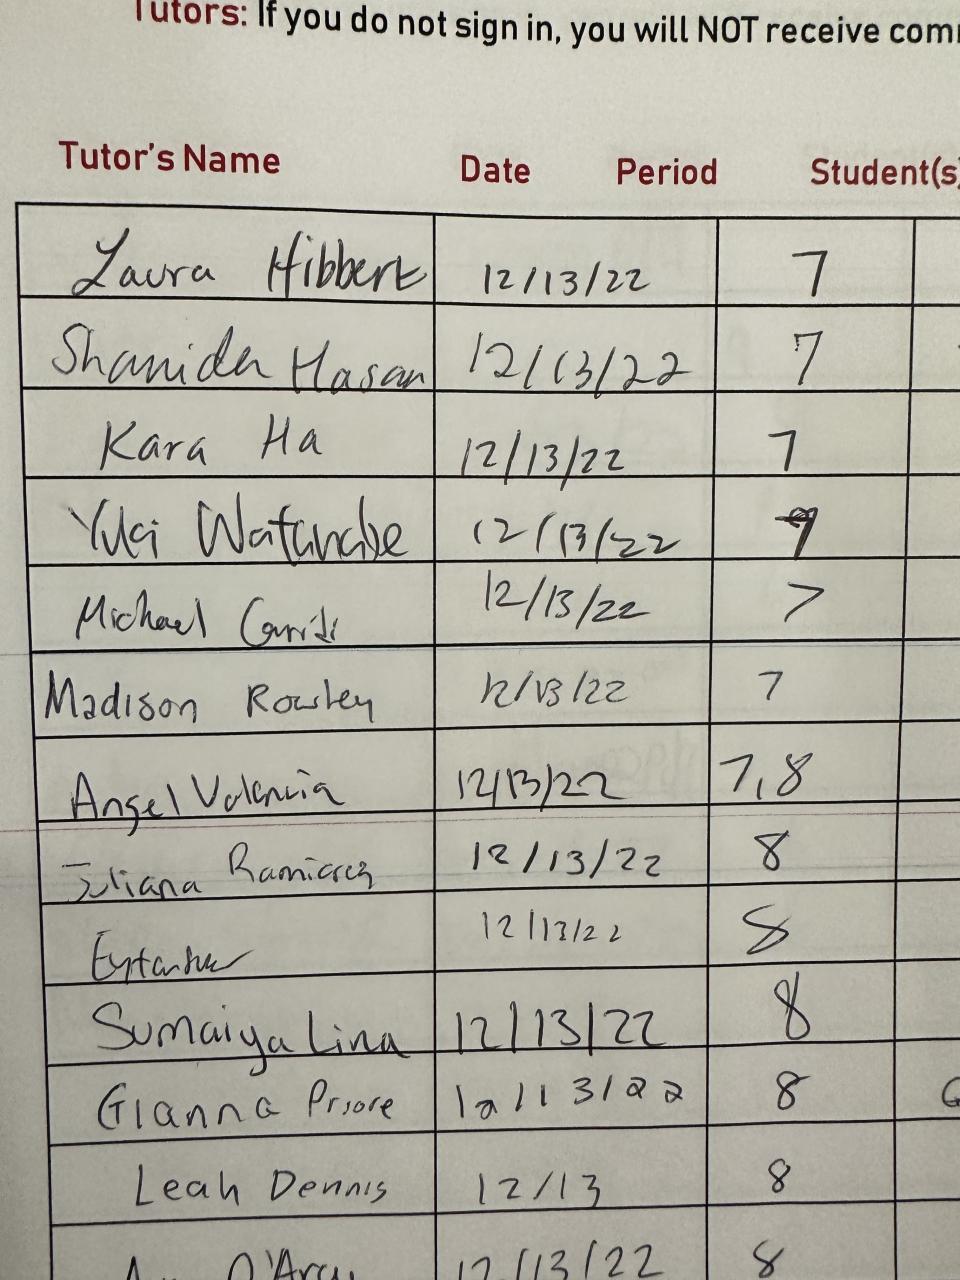 Tutors: If you do not sign in, you will NOT receive
Tutor's Name Date Period Student(s)
Laura Hibbert 12/13/22 7
Shanida Hasan 12/13/22 7
Kara Ha 12/13/22 7
Yuki Watanabe 12/13/22
Michael 12/13/22 7
Madison Rowley 12/13/22 7
Angel Valencia 12/13/22 7,8
Juliana Ramirez 12/13/22 8
12/13/22 8
Sumaiya Lina 12/13/22 8
Gianna Priore 12/13/22 8
Leah Dennis 12/13 8
12/13/22 8